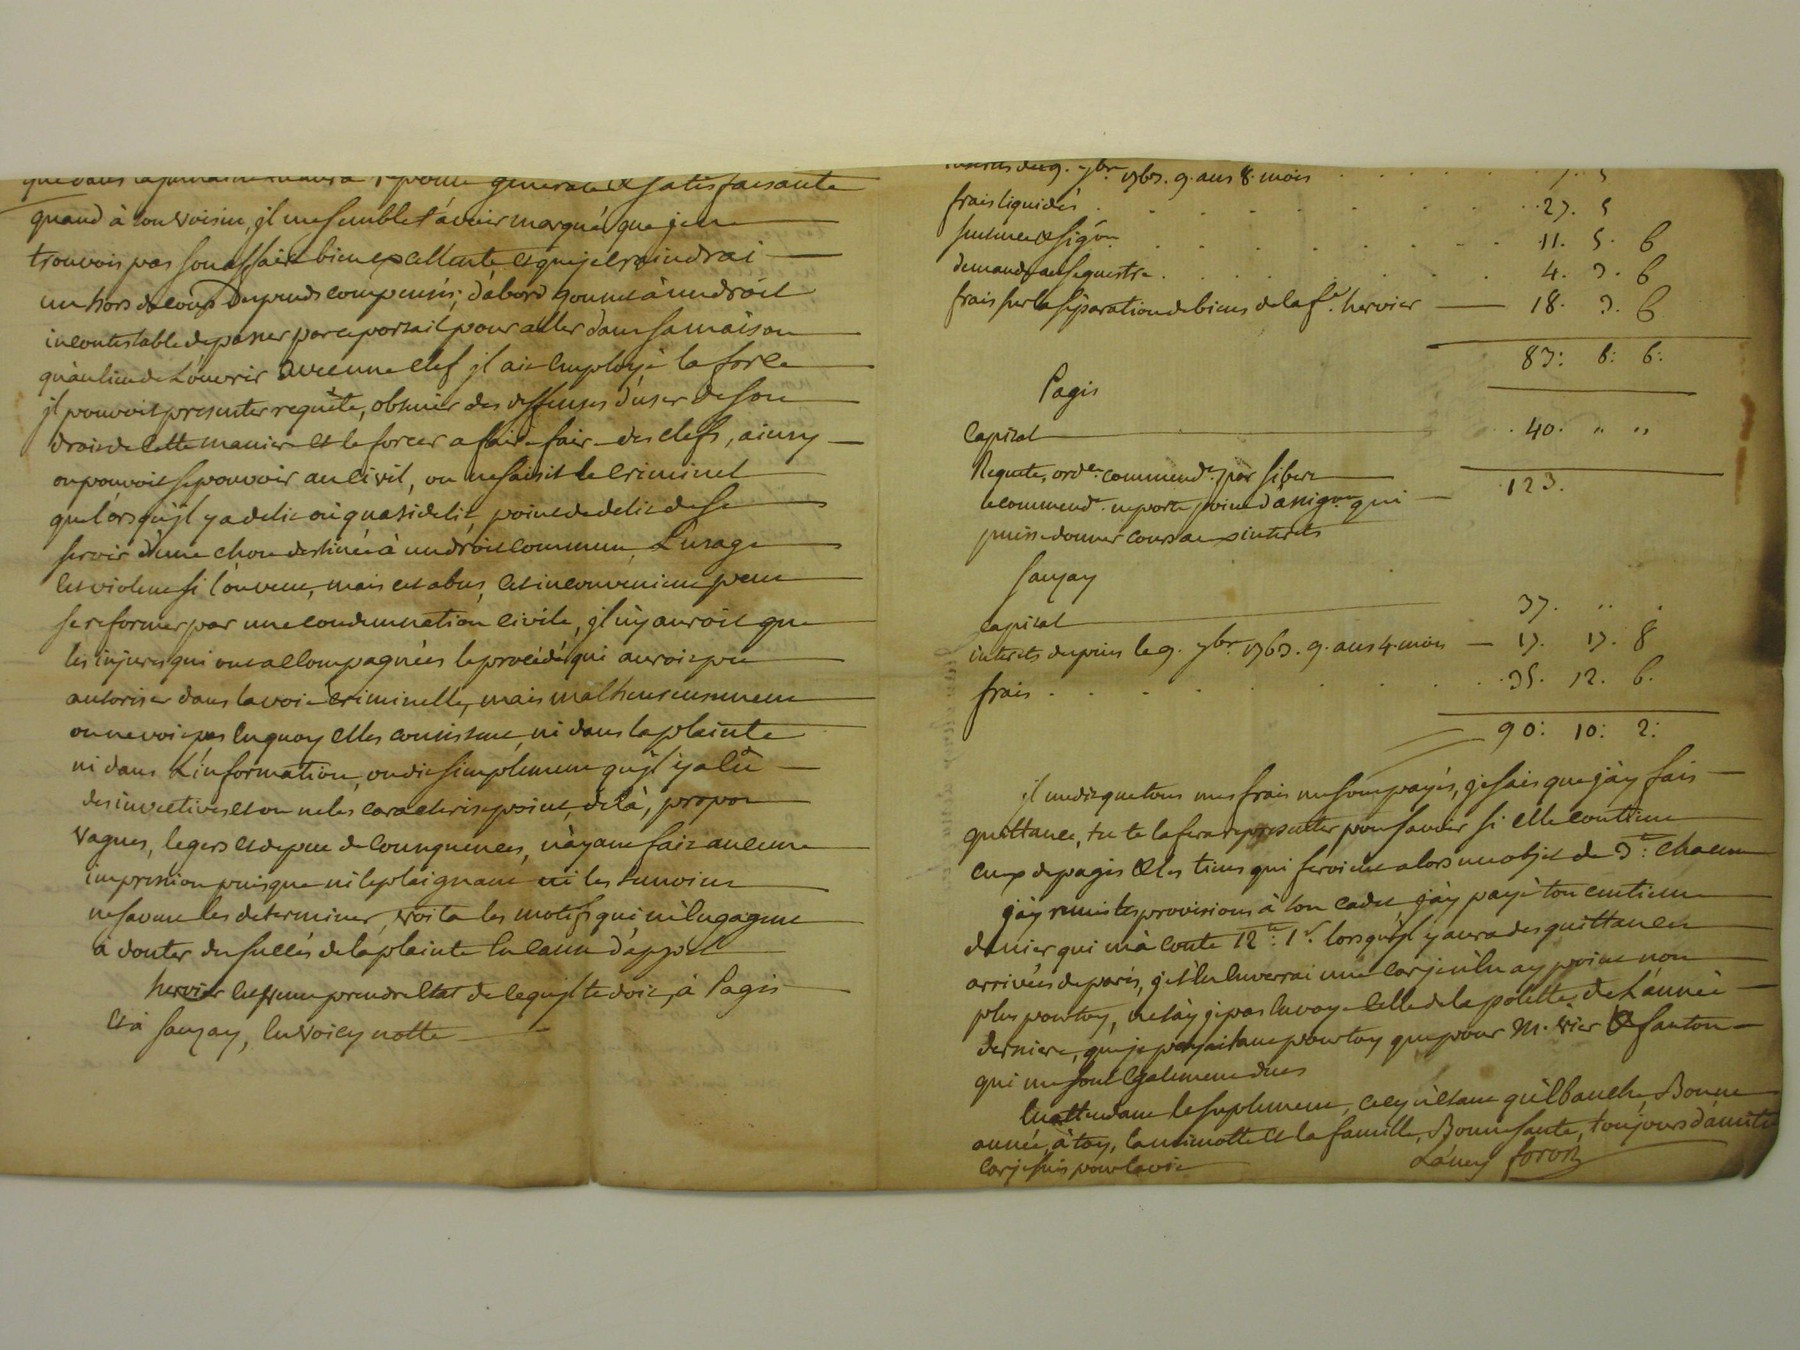 generale & satisfaisante
quand à ton voisin, jl me semble t'avoir marqué que je ne
trouvois pas son affaire bien excellente et que je craindrai
un hors de cour depends compensés; d'abord qu'on est à un droit
incontestable de passer par ce portail pour aller dans sa maison
qu'au lieu de l'ouvrir avec une clef jl aie employé la force
jl pouvoit presenter requête, obtenir des deffenses d'user de son
droit de cette maniere et le forcer a faire fair des clefs, ainsy
on pouvoit se pouvoir au civil, on ne saisit le criminel
que lorsqu'jl y a delit ou quasi delit, point de delit de se
servir d'une chose destinée à un droit commun, L'usage
est violent si l'on veut, mais cet abus, cet inconvenient peut
se reformer par une condemnation civile, jl n'y auroit que
les injures qui ont accompagnées le procédé qui auroit pu
autoriser dans la voie criminelle, mais malheureusement
on ne voit pas en quoy elles consistent, ni dans la plainte
ni dans L'information, on dit simplement qu'jl y a eû
des invectives et on ne les caracterise point, de là, propos
vagues, legers et de peu de consequences, n'ayant fait aucune
impression puisque ni le plaignant ni les temoins
ne savent les determiner, voila les motifs qui m'engagent
à douter du succés de la plainte en cause d'appel
hervier prendre etat de ce qu'jl te doit, à Pagis
et à sauzay, en voicy notte
interets du 9. 7bre 1763. 9. ans 8. mois
frais liquidés 27. 5
sentence & sigon 11. 5. 6
demande au sequestre 4. 3. 6
frais sur la séparation de biens de la fe. hervier 18. 3. 6
83: 8: 6:
Pagis
capital 40. " "
123.
Requete, orde. commende. par sibert
le commend. ne porte point d'assigon. qui
puisse donner cours aux interets
sauzay
capital 37.
interets depuis le 9. 7bre. 1763. 9. ans 4. mois 17. 17. 8
frais 35. 12. 6.
90: 10: 2:
il me dit que tous mes frais me sont payés, je sais que j'ay fait
quittance, tu te la feras representer pour savoir si elle contient
ceux de pagis & les tiens qui servient alors un objet de 3tt: chacun
j'ay remis tes provisions à ton cadet j'ay payé ton centieme
denier qui m'a couté 12tt: 1s. lorsqu'jl y aura des quittances
arrivées de paris, je t'en enverrai une car je n'en ay point non
plus pour toy, ne t'ay je pas envoyé celle de la polette de L'année
derniere, que je payai tant pour toy que pour M. vier & santon
qui me sont egalement dues
En attendant le suplement, cecy n'etant qu'ébauche, Bonne
année, à toy, la mimotte et la famille, Bonne santé, toujours d'amitié
car je suis pour la vie L'amy foron